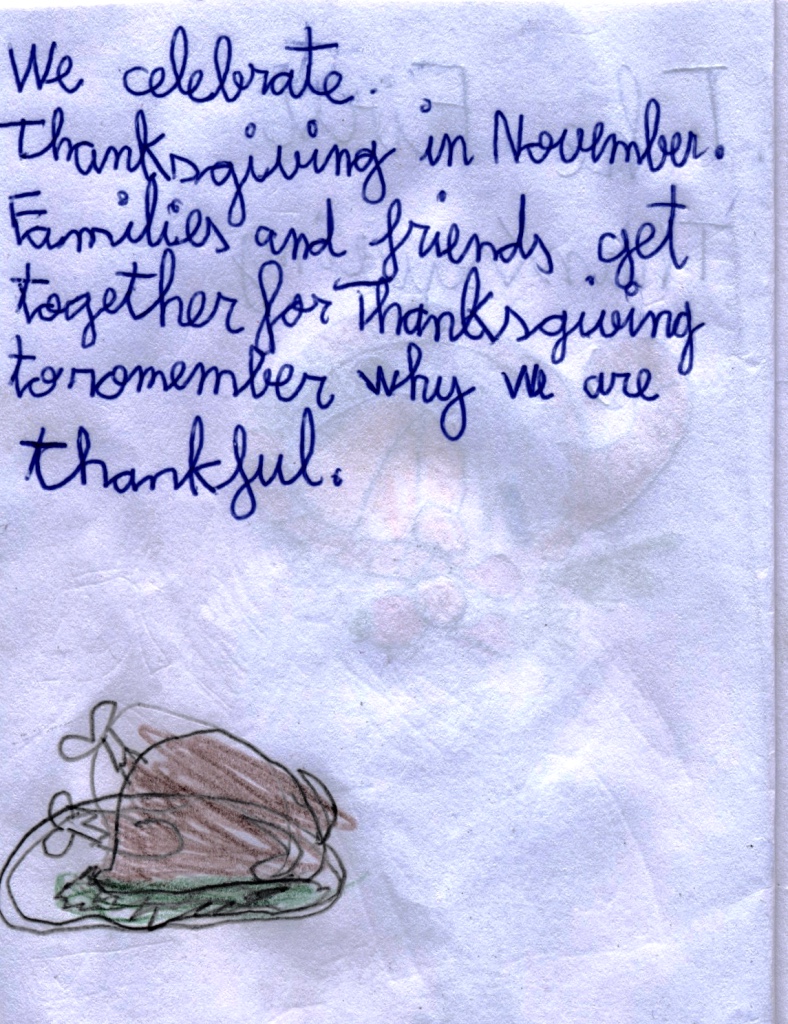 We celebrate.
Thanksgiving in November.
Families and friends get
together for Thanksgiving
to romember why we are
thankful.